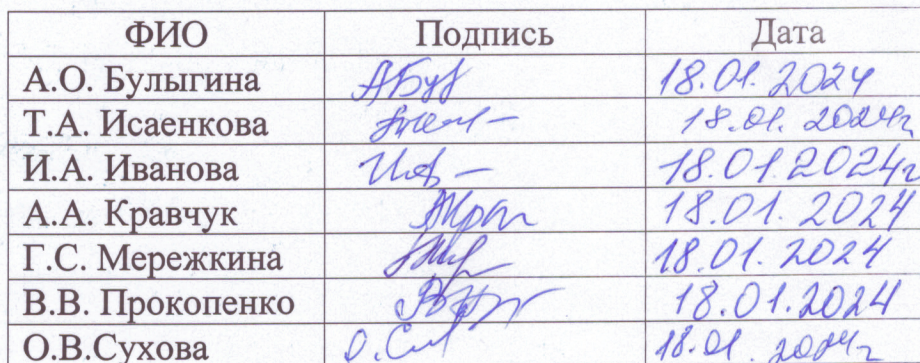 ФИО Подпись Дата
А.О. Булыгина 18.01.2024
Т.А. Исаенкова 18.01.2024г
И.А. Иванова 18.01.2024г
А.А. Кравчук 18.01.2024
Г.С. Мережкина 18.01.2024
В.В. Прокопенко 18.01.2024
О.В.Сухова 18.01 2024г